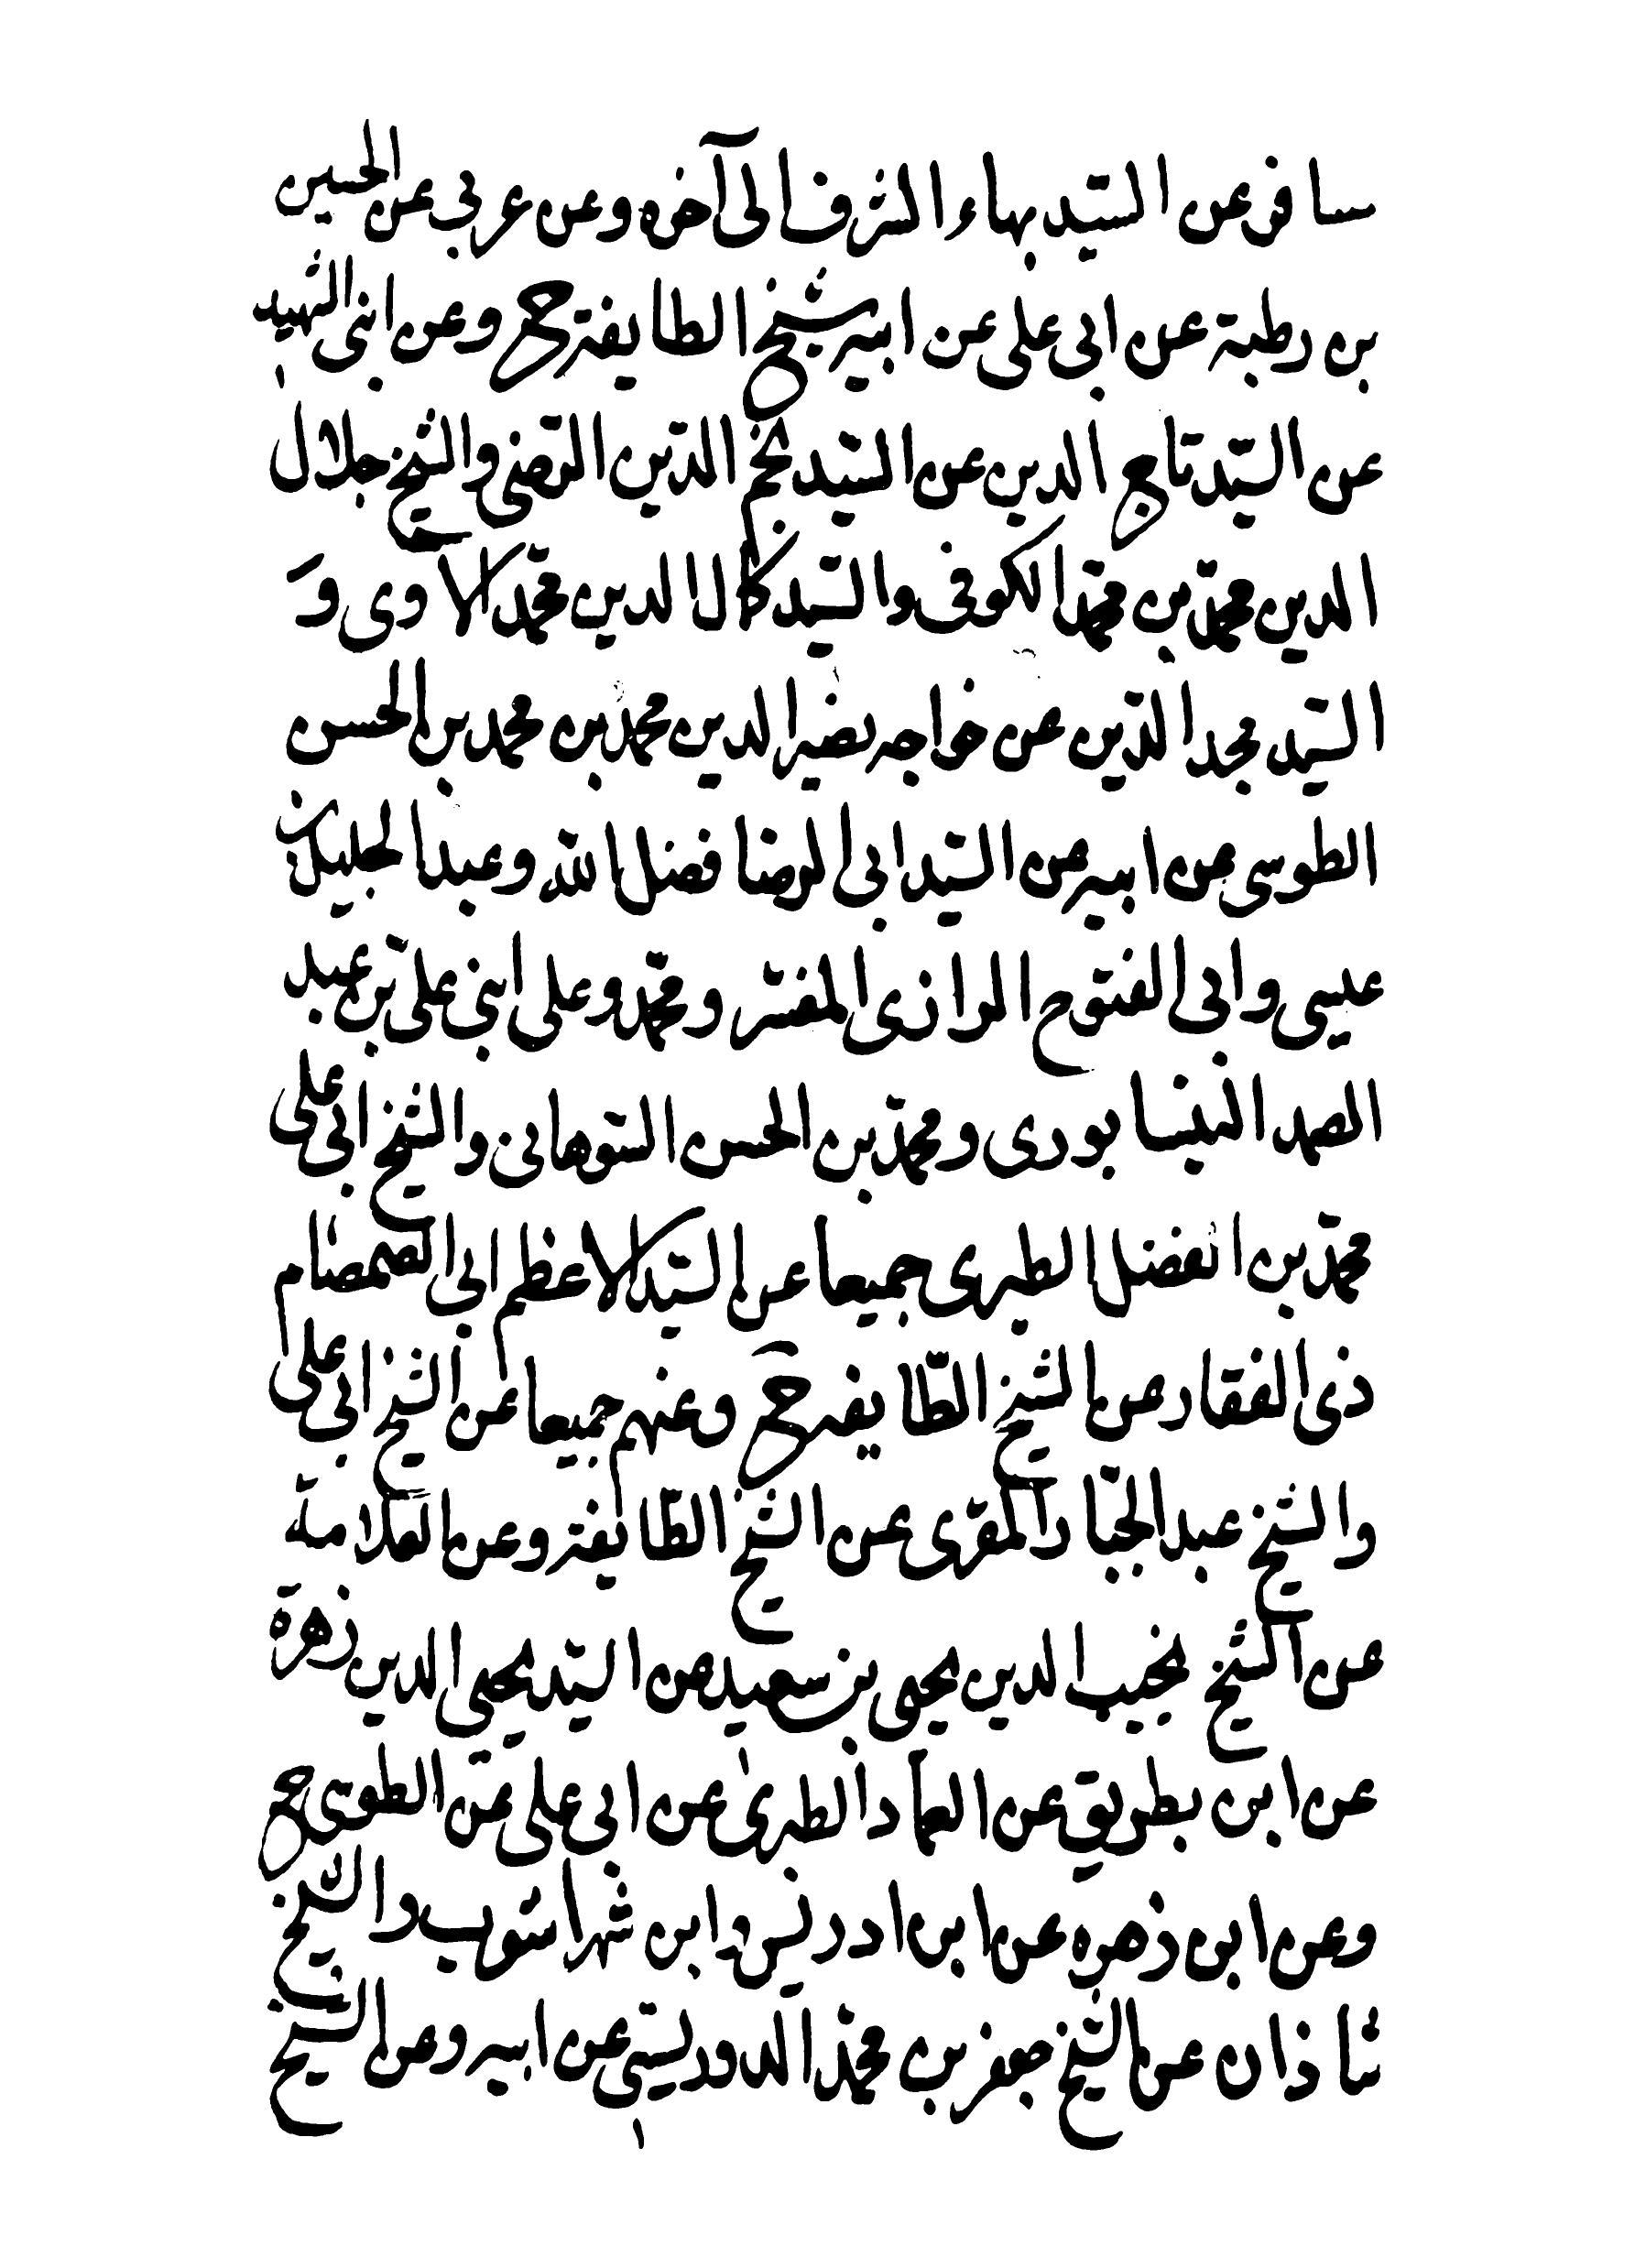 سافر عن السيّد بهاء الشرف الى آخره وعن عربى عن الحسين
بن رطبة عن ابى على عن ابيه شيخ الطايفة رح وعن ابنى الشهيد
عن السيّد تاج الدين عن السيّد نجم الدّين الرّضى والشيخ جلال
الدين محمّد بن محمّد الكوفى والسيّد كمال الدين محمّد الاوى و
السيّد مجد الدّين عن خواجه نصير الدين محمّد بن محمد بن الحسن
الطوسى عن ابيه عن السيّد ابى الرضا فضل الله وعبد الجليل بن
عيسى وابى الفتوح الرازى المفسّر ومحمّد وعلى ابنى على بن عبد
الصمد النيشابورى ومحمّد بن الحسن الشوهانى والشيخ ابى على
محمّد بن الفضل الطبرى جميعا عن السيّد الاعظم ابى الصمصام
ذى الفقار عن الشيخ الطّايفه رح وعنهم جميعا عن الشيخ ابى على
والشيخ عبد الجبّار المقرى عن الشيخ الطّايفة وعن العلامة
عن الشيخ نجيب الدين يحيى بن سعيد عن السيّد محيى الدين زهرة
عن ابن بطريق عن العماد الطبرى عن ابى على عن الطوسى رح
وعن ابن زهره عن ابن ادريس وابن شهراشوب والشيخ
شاذان عن الشيخ جعفر بن محمّد الدوريستى عن ابيه وعن الشيخ